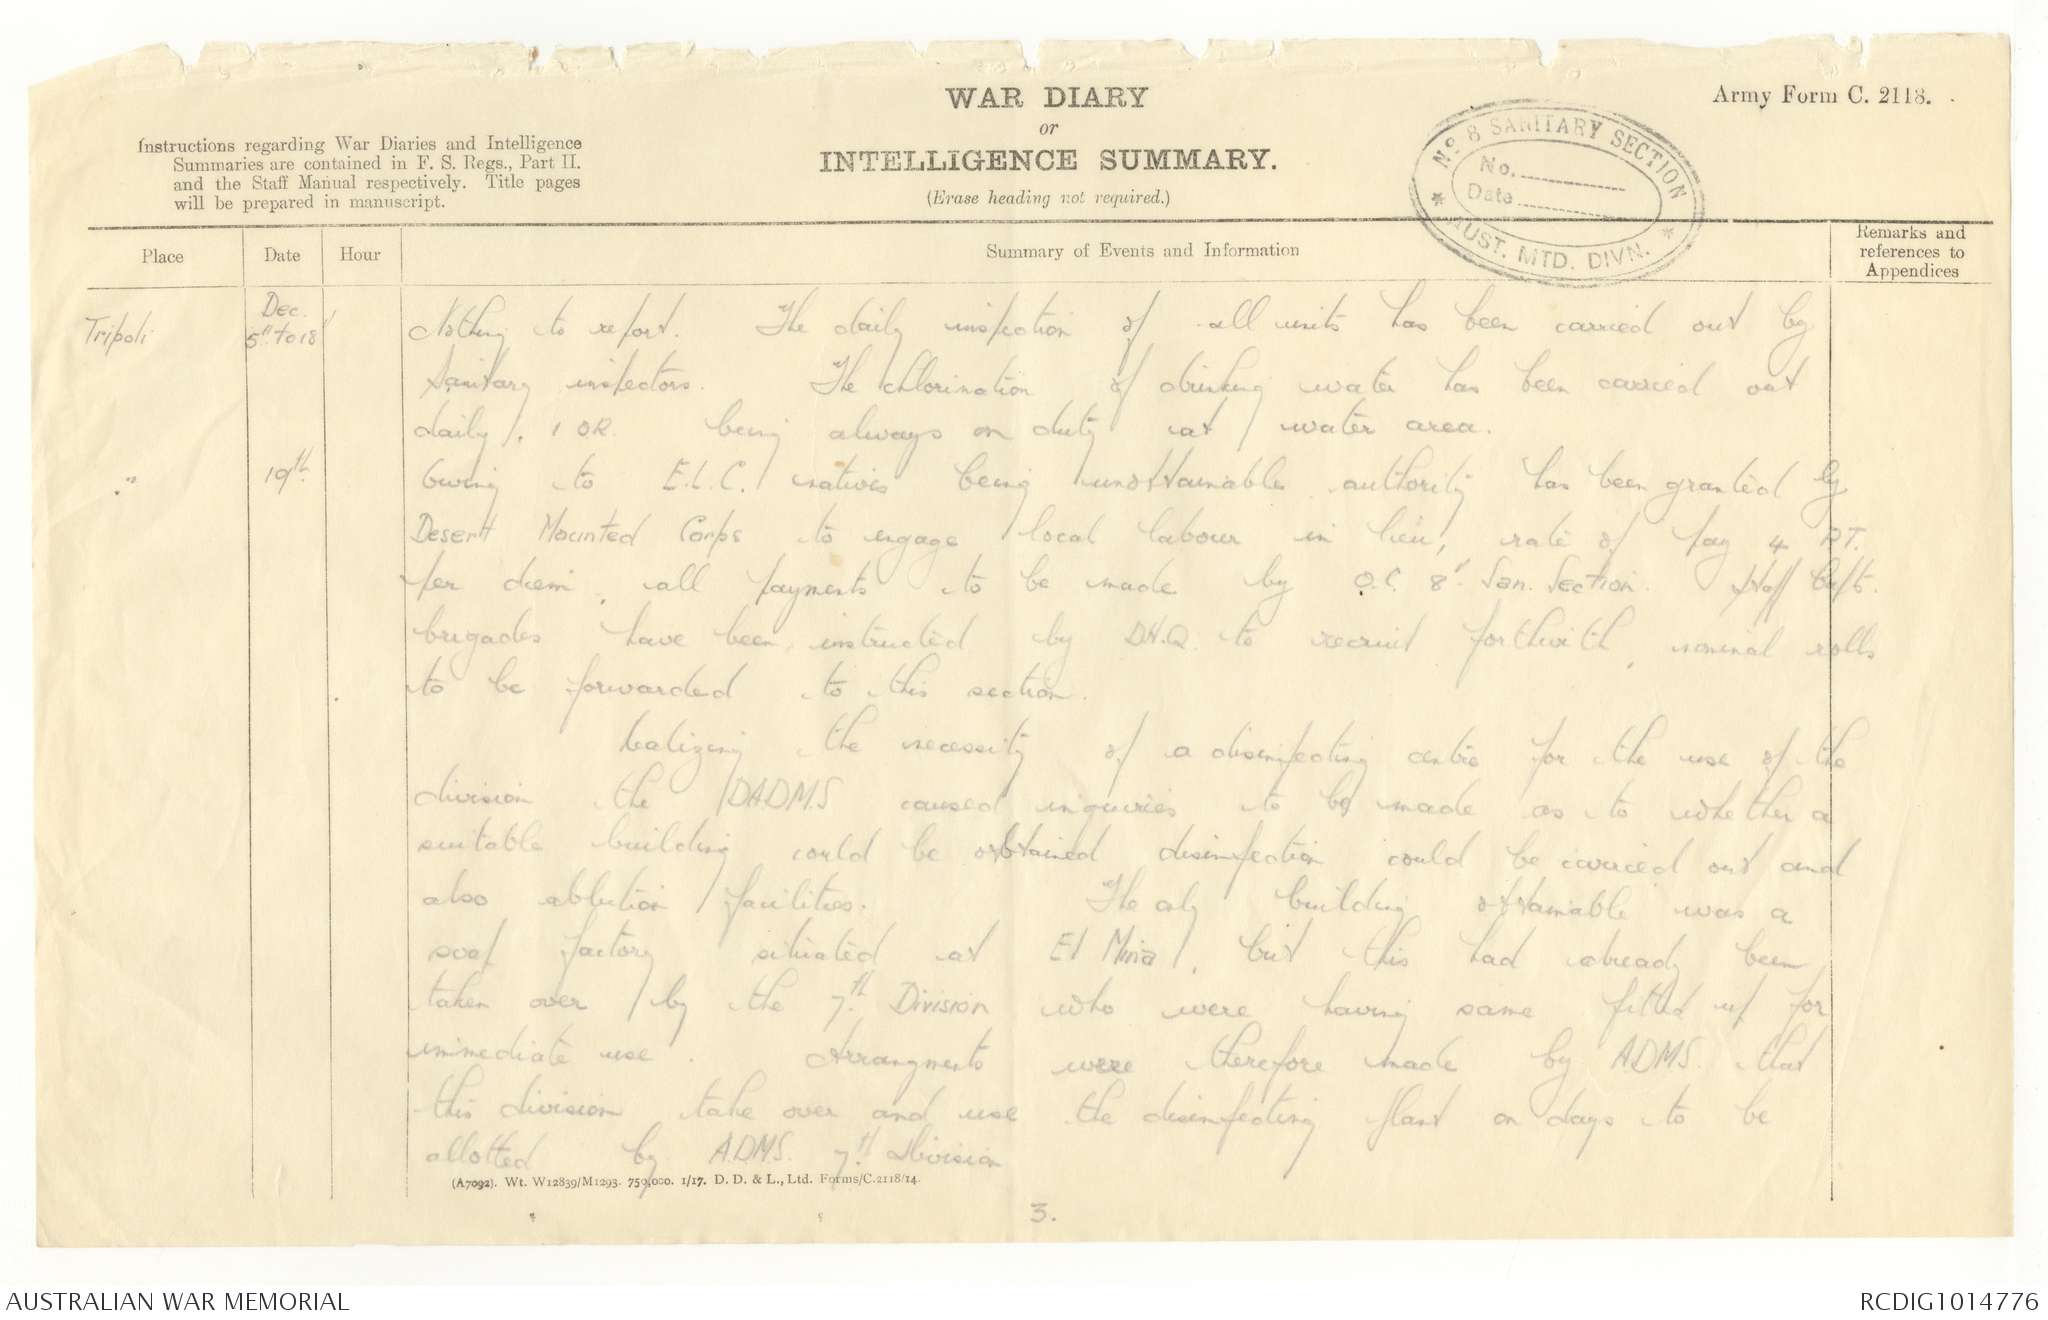 WAR DIARY
or
INTELLIGENCE SUMMARY.
(Erase heading not required.)
Army Form C. 2118.
Instructions regarding War Diaries and Intelligence
Summaries are contained in F. S. Regs., Part II.
and the Staff Manual respectively. Title pages
will be prepared in manuscript.
No. 8 SANITARY SECTION
No.
Date
AUST. MTD. DIVN.
Place
Date
Hour
Summary of Events and Information
Remarks and
references to
Appendices
Tripoli
Dec.
5th to 18
Nothing to report. The daily inspection of all units has been carried out by
Sanitary inspectors. The chlorination of drinking water has been carried out
daily, 1 OR. being always on duty at water area.
" 19th
Owing to E.L.C. natives being unobtainable authority has been granted by
Desert Mounted Corps to engage local labour in lieu, rate of pay 4 P.T.
per diem, all payments to be made by O.C. 8' San. Section. Staff Capts.
brigades have been instructed by D.H.Q. to recruit forthwith, nominal rolls
to be forwarded to this section.
Realizing the necessity of a disinfecting centre for the use of the
division the DADMS caused inquiries to be made as to whether a
suitable building could be obtained disinfection could be carried out and
also ablution facilities. The only building obtainable was a
soap factory situated at El Mina, but this had already been
taken over by the 7th Division who were having same fitted up for
immediate use. Arrangments were therefore made by ADMS. that
this division take over and use the disinfecting plant on days to be
allotted by A.D.M.S. 7th Division
(A7092). Wt. W12839/M1293. 750,000. 1/17. D. D. & L., Ltd. Forms/C.2118/14.
3.
AUSTRALIAN WAR MEMORIAL
RCDIG1014776